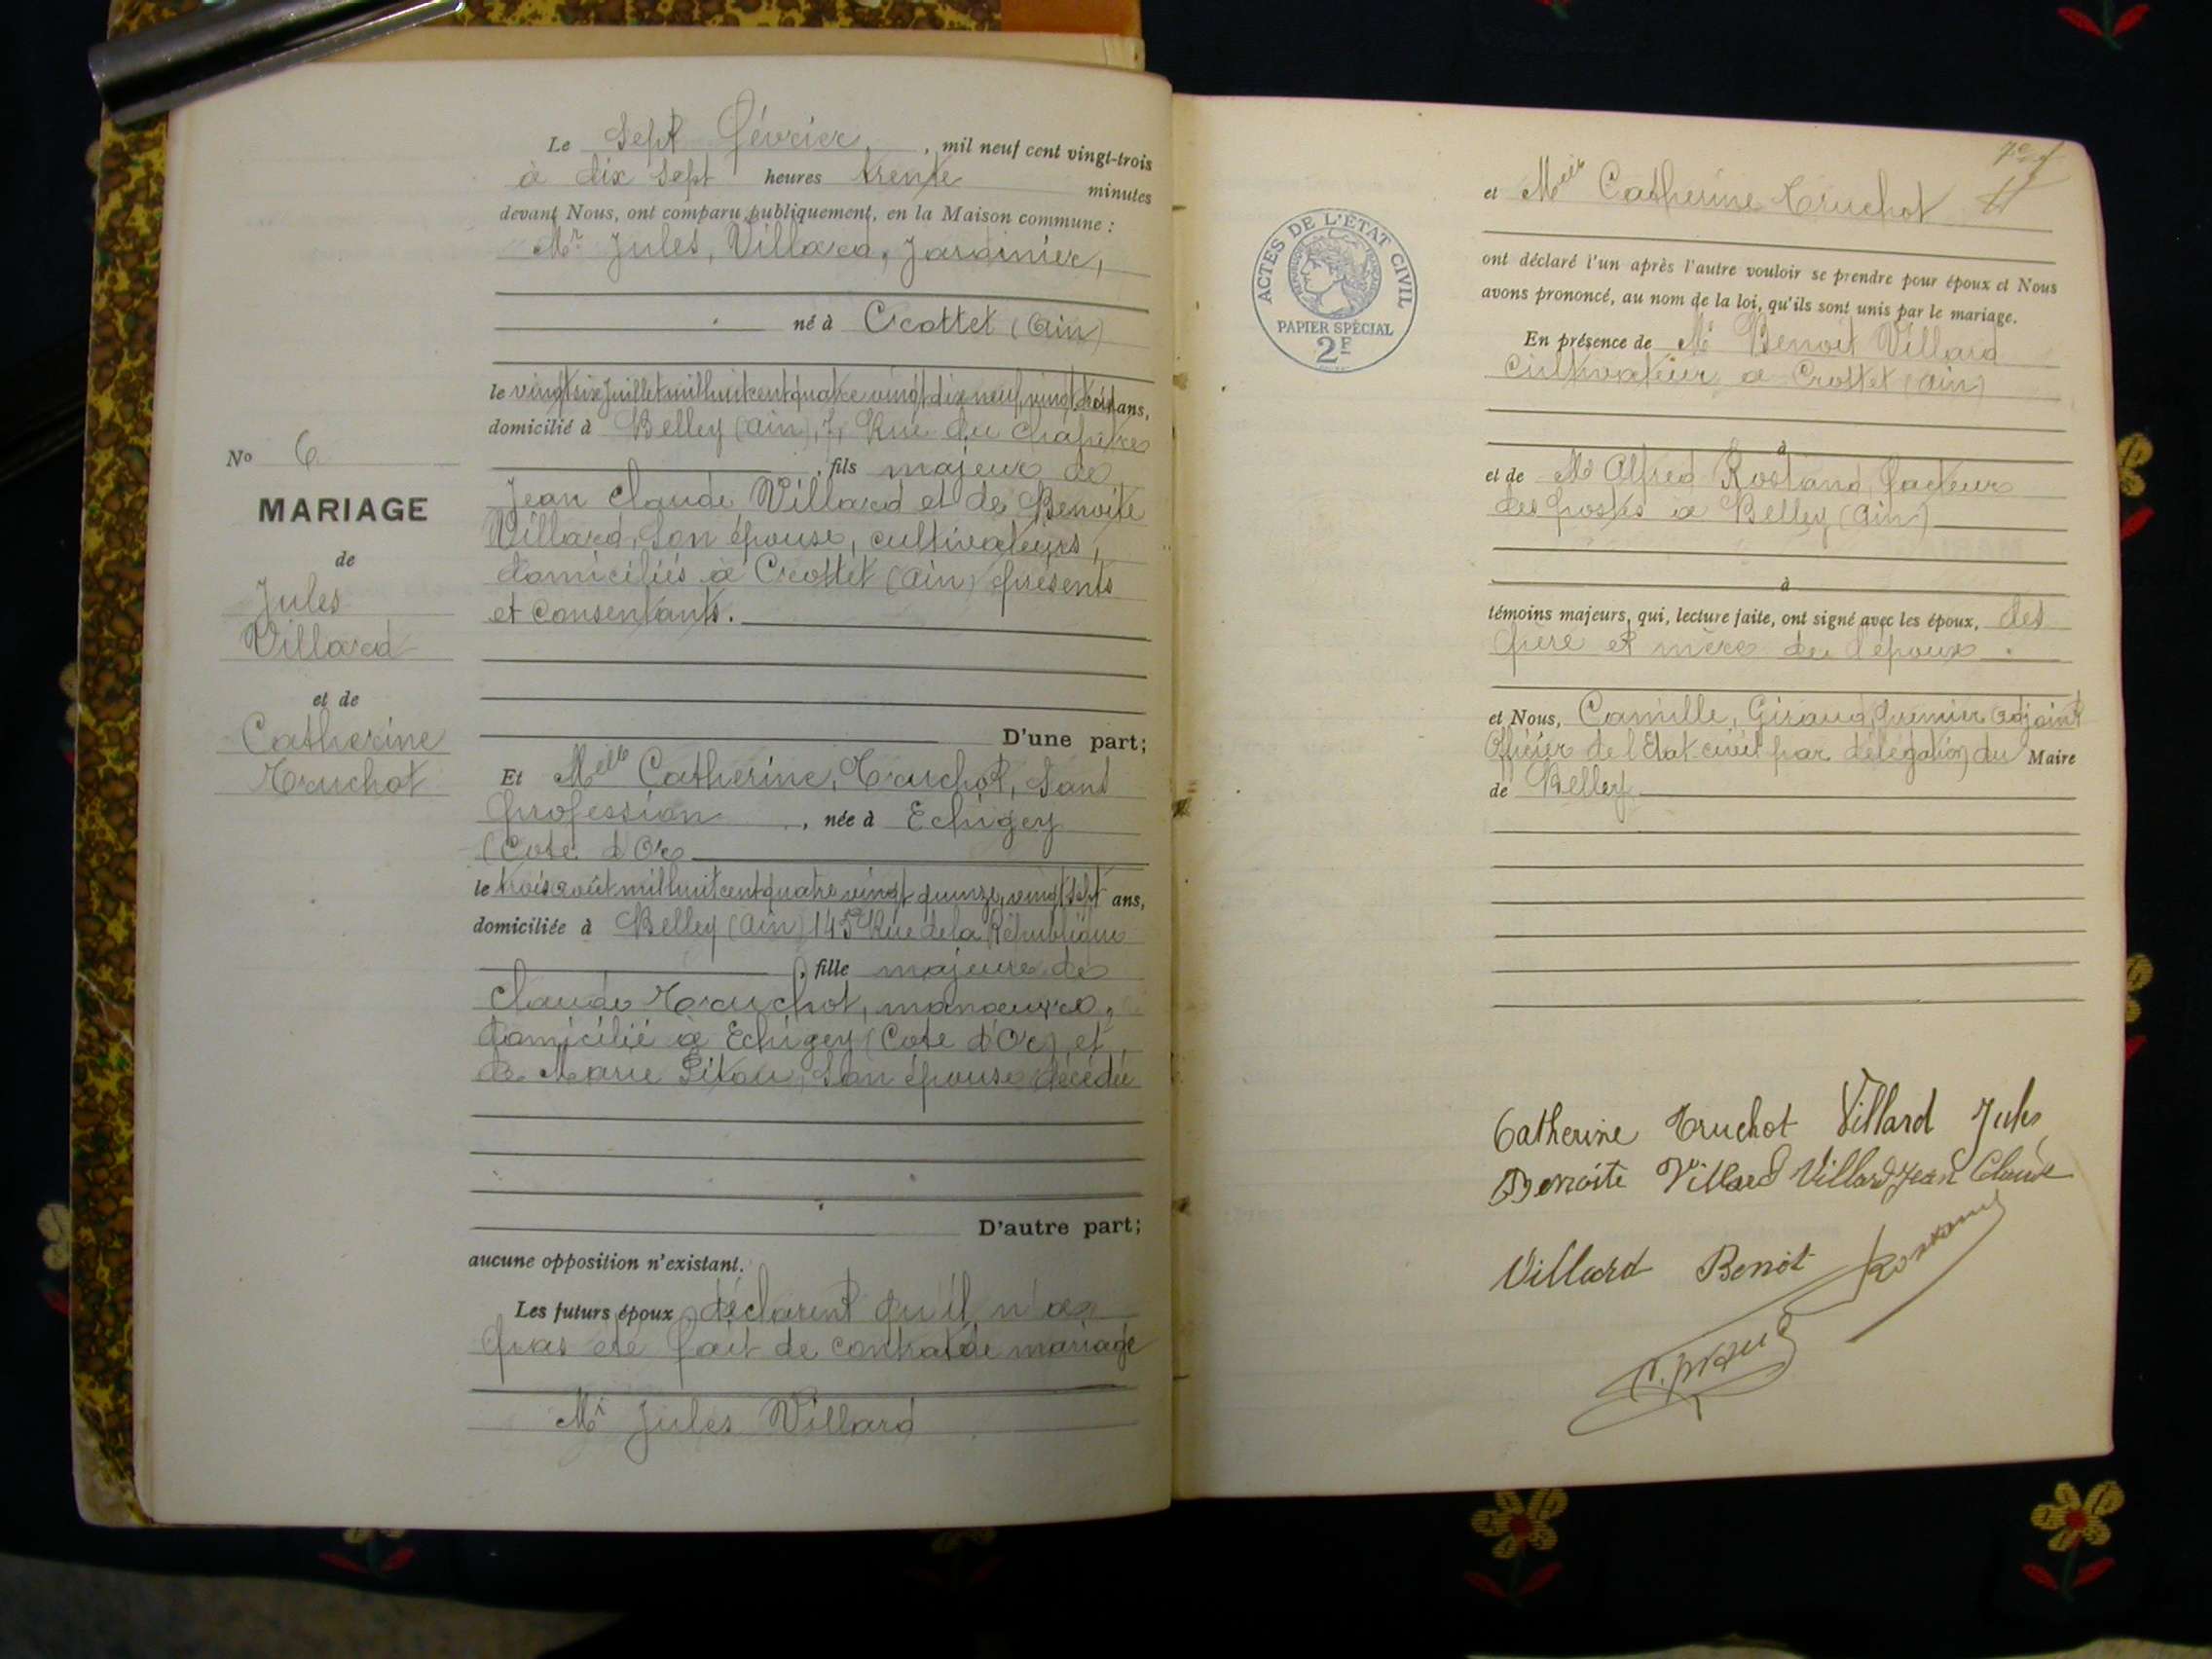 Le Sept Février, mil neuf cent vingt-trois
à dix sept heures trente minutes
devant Nous, ont comparu publiquement, en la Maison commune :
Mr Jules, Villard, Jardinier,
né à Crottet (Ain)
le vingt six Juillet mil huit cent quatre vingt dix neuf, vingt trois ans,
domicilié à Belley (Ain), 7, Rue du Chapitre
, fils majeur de
Jean Claude Villard et de Benoite
Villard, son épouse, cultivateurs,
domiciliés à Crottet (Ain) présents
et consentants.
D'une part;
No 6
MARIAGE
de
Jules
Villard
et de
Catherine
Truchot
Et Melle Catherine, Truchot, Sans
profession, née à Echigey
(Cote d'Or
le trois août mil huit cent quatre vingt quinze, vingt sept ans,
domiciliée à Belley (Ain) 145 Rue de la République
, fille majeure de
Claude Truchot, manoeuvre,
domicilié à Echigey (Cote d'Or) et
de Marie, son épouse décédée
D'autre part;
aucune opposition n'existant.
Les futurs époux déclarent qu'il n'a
pas été fait de contrat de mariage
Mr Jules Villard
et Melle Catherine Truchot
ont déclaré l'un après l'autre vouloir se prendre pour époux et Nous
avons prononcé, au nom de la loi, qu'ils sont unis par le mariage.
En présence de Mr Benoit Villard
Cultivateur à Crottet (Ain)
à
et de Mr Alfred Rostand, facteur
des postes à Belley (Ain)
à
témoins majeurs, qui, lecture faite, ont signé avec les époux, les
père et mère de l'époux.
et Nous, Camille, Giraud, premier adjoint
Officier de l'Etat-civil par délégation du Maire
de Belley
ACTES DE L'ÉTAT CIVIL
RÉPUBLIQUE FRANÇAISE
PAPIER SPÉCIAL
2F
Catherine Truchot Villard Jules
Benoite Villard Villard Jean Claude
Villard Benoit Rostand
C. Giraud